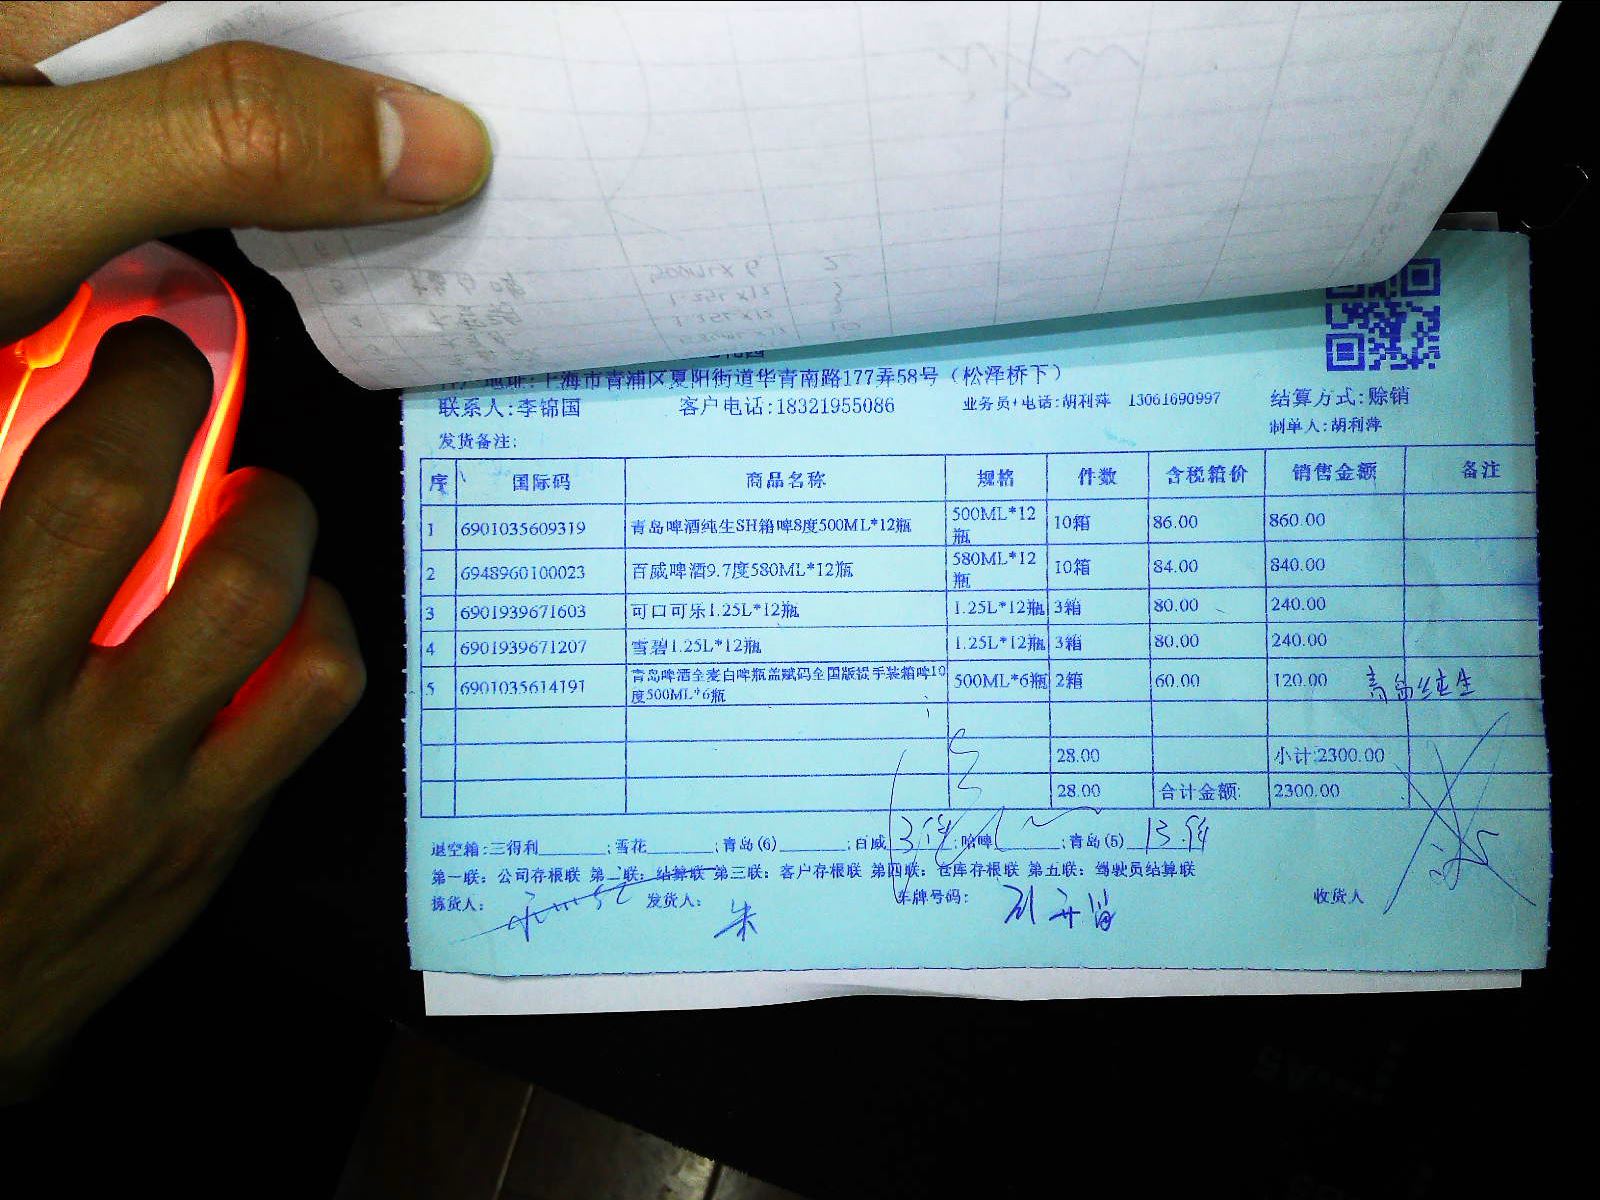 地址:上海市青浦区夏阳街道华青南路177弄58号（松泽桥下）
联系人:李锦国 客户电话:18321955086 业务员+电话:胡利萍 13061690997 结算方式:赊销
制单人:胡利萍
发货备注:
序 国际码 商品名称 规格 件数 含税箱价 销售金额 备注
1 6901035609319 青岛啤酒纯生SH箱啤8度500ML*12瓶 500ML*12瓶 10箱 86.00 860.00
2 6948960100023 百威啤酒9.7度580ML*12瓶 580ML*12瓶 10箱 84.00 840.00
3 6901939671603 可口可乐1.25L*12瓶 1.25L*12瓶 3箱 80.00 240.00
4 6901939671207 雪碧1.25L*12瓶 1.25L*12瓶 3箱 80.00 240.00
5 6901035614191 青岛啤酒全麦白啤瓶盖赋码全国版提手装箱啤10度500ML*6瓶 500ML*6瓶 2箱 60.00 120.00 青岛纯生
28.00 小计:2300.00
28.00 合计金额: 2300.00
退空箱:三得利______;雪花______;青岛(6)______;百威 3 ;哈啤______;青岛(5) 13
第一联: 公司存根联 第二联: 结算联 第三联: 客户存根联 第四联: 仓库存根联 第五联: 驾驶员结算联
拣货人: 发货人: 朱 车牌号码: 收货人